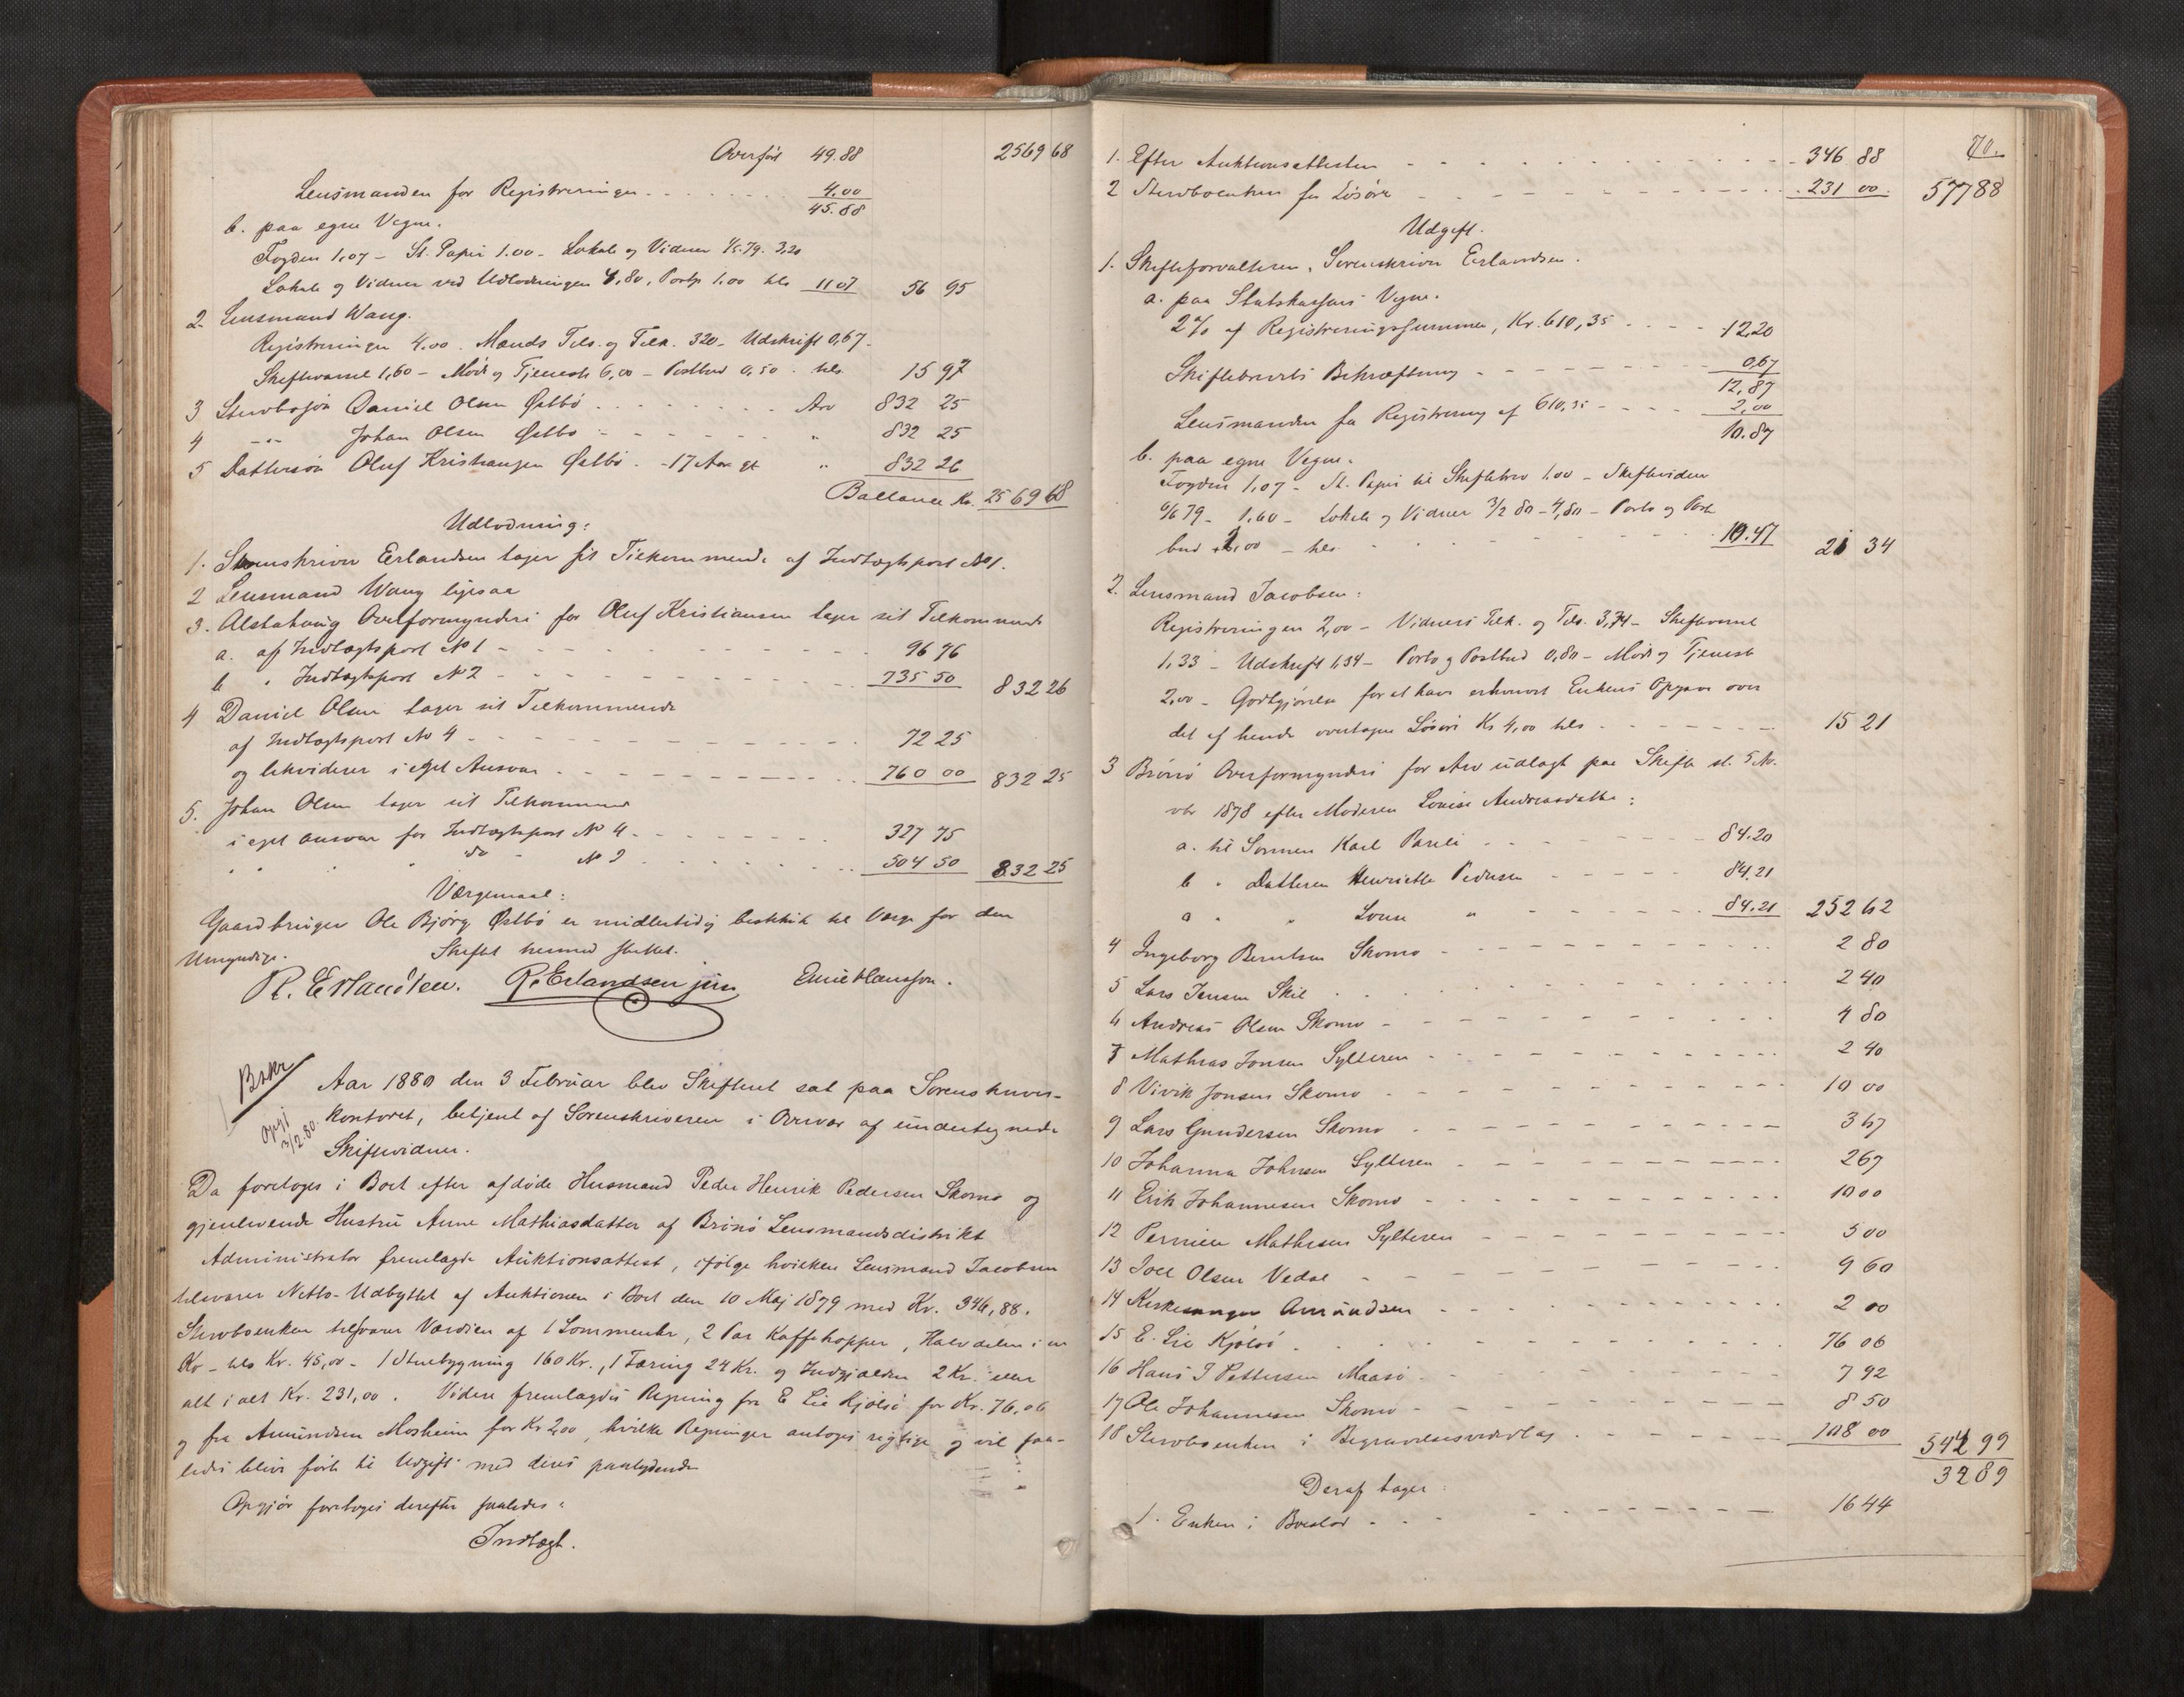 Overført 49.88 2569 68
Lensmanden for Registreringen 4.00
45.88
b. paa egne Vegne.
Fogden 1,07 - St. Papir 1.00 - Lokale og Vidner 1/5.79. 3,20
Lokale og Vidner ved Udlodningen 4,80, Porto 1.00 tils 11 07 56 95
2. Lensmand Wang.
Registreringen 4.00. Mænds Tils. og Tilk. 320 - Udskrift 0,67.
Skiftevarsel 1,60 - Møde og Tjeneste 6,00 - Postbud 0,50. tils. 15 97
3 Stervbosøn Daniel Olsen Østbö Arv 832 25
4 -"- Johan Olsen Østbö " 832 25
5 Dattersøn Oluf Kristiansen Østbö - 17 Aar gl. " 832 26
Ballance Kr. 2569 68
Udlodning:
1. Sorenskriver Erlandsen tager sit Tilkommende af Indtægtspost No 1.
2 Lensmand Wang ligesaa
3. Alstahoug Overformynderi for Oluf Kristiansen tager sit Tilkommende
a. af Indtægtspost No 1 96 76
b " Indtægtspost No 2 735 50 832 26
4 Daniel Olsen tager sit Tilkommende
af Indtægtspost No 4 72 25
og likviderer i eget Ansvar 760 00 832 25
5. Johan Olsen tager sit Tilkommende
i eget ansvar for Indtægtspost No 4 327 75
" " " do - No 3 504 50 832 25
Værgemaal:
Gaardbruger Ole Bjørg Østbö er midlertidig beskikket til Værge for den
Umyndige. Skiftet hermed sluttet.
R. Erlandsen. R. Erlandsen jun Emil Hansson.
Aar 1880 den 3 Februar blev Skifteret sat paa Sorenskriver-
kontoret, betjent af Sorenskriveren i Overvær af undertegnede
Opgj 3/2.80.
Skiftevidner.
Da foretoges i Boet efter afdøde Husmand Peder Henrik Pedersen Skomo og
gjenlevende Hustru Anne Mathiasdatter af Brönö Lensmandsdistrikt
Administrator fremlagde Auktionsattest, ifølge hvilken Lensmand Jacobsen
tilsvarer Netto-Udbyttet af Auktionen i Boet den 10 Maj 1879 med Kr. 346,88.
Stervboenken tilsvarer Værdien af 1 Lommeuhr, 2 Par Kaffekopper, Halvdelen i en
Ko - tils Kr. 45,00 - 1 Stuebygning 160 Kr., 1 Færing 24 Kr. og Indgjælden 2 Kr. eller
alt i alt Kr. 231,00. Videre fremlagdes Regning fra E Lie Kjølsö for Kr. 76,06
og fra Amundsen Mosheim for Kr 2,00, hvilke Regninger antoges rigtige og vil saa-
ledes blive ført til Udgift med deres paalydende
Opgjør foretoges derefter saaledes:
Indtægt.
70.
1. Efter Auktionsattesten 346 88
2 Stervboenken for Løsøre 231 00 577 88
Udgift.
1. Skifteforvalteren, Sorenskriver Erlandsen.
a. paa Statskassens Vegne.
2% af Registreringssummen, Kr. 610,35 12,20
Skiftebrevets Bekræftning 0,67
12,87
Lensmanden for Registrering af 610,35 2,00
10.87
b. paa egne Vegne.
Fogden 1,07 - St. Papir til Skiftebrev 1,00 - Skiftevidner
6/6 79 - 1,60 - Lokale og Vidner 3/2 80 - 4,80 - Porto og Post
bud 2,00 - tils 10.47 21 34
2. Lensmand Jacobsen:
Registreringen 2,00 - Vidners Tilk. og Tils. 3,74 - Skiftevarsel
1,33 - Udskrift 1,34 - Porto og Postbud 0,80 - Møde og Tjeneste
2,00 - Godtgjørelse for at have erhvervet Enkens Opgave over
det af hende overtagne Løsøre Kr 4,00 tils 15 21
3 Brönö Overformynderi for Arv udlagt paa Skifte sl. 5 No.
vbr 1878 efter Moderen Louise Andreasdatter:
a. til Sønnen Karl Pareli 84.20
b " Datteren Henriette Pedersen 84.21
c " " Louise " 84.21 252 62
4 Ingeborg Berntsen Skomo 2 80
5 Lars Jensen Skil 2 40
6 Andreas Olsen Skomo 4 80
7 Mathias Jonsen Sylteren 2 40
8 Vivik Jonsen Skomo 10 00
9 Lars Gundersen Skomo 3 67
10 Johanna Johnsen Sylteren 2 67
11 Erik Johannesen Skomo 10 00
12 Pernille Mathisen Sylteren 5 00
13 Joel Olsen Vedal 9 60
14 Kirkesanger Amundsen 2 00
15 E. Lie Kjølsö 76 06
16 Hans J Pettersen Maasö 7 92
17 Ole Johannesen Skomo 8 50
18 Stervboenken i Begravelsesvederlag 108 00 544 99
32 89
Deraf tager:
1. Enken i Boeslod 16 44